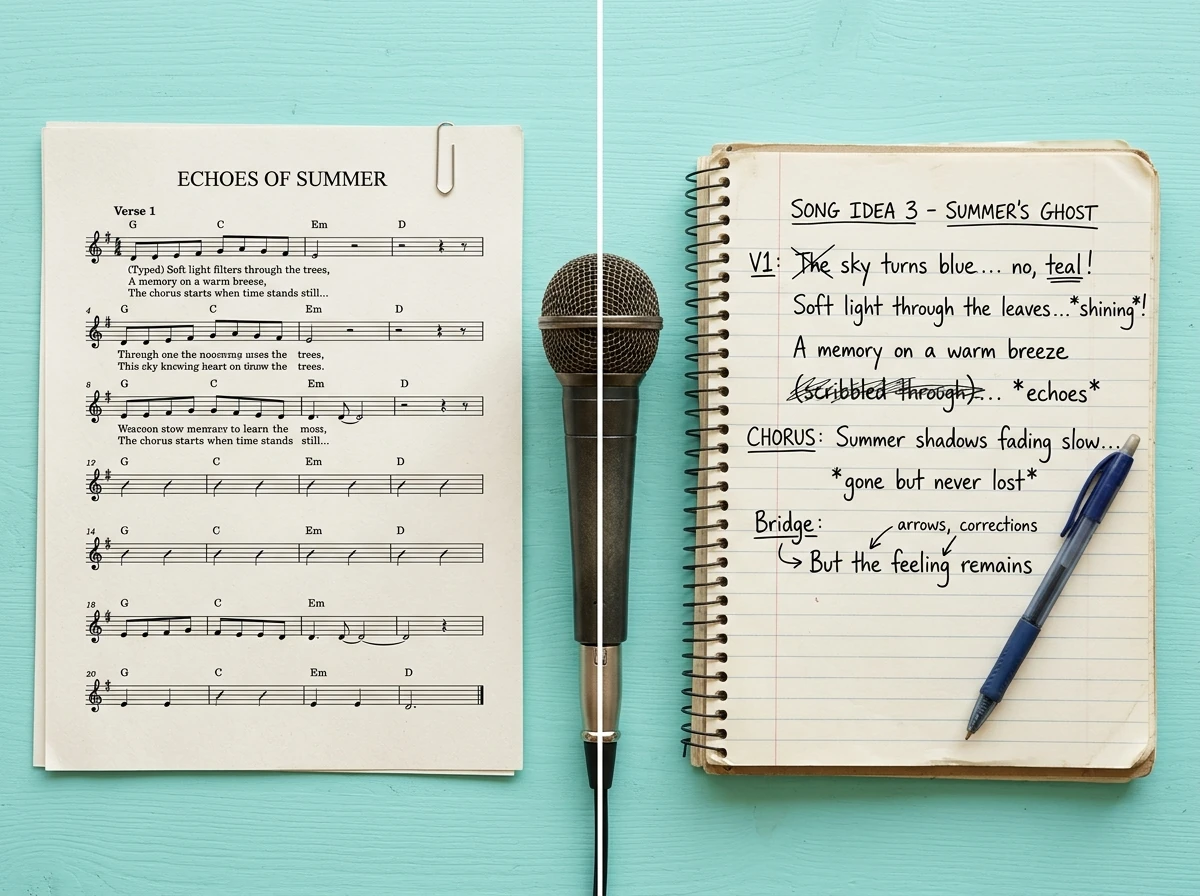 ECHOES OF SUMMER
Verse 1
G C Em D
(Typed) Soft light filters through the trees,
A memory on a warm breese,
The chorus starts when time stands still...
4 G C Em D
Through one the uses the trees,
This heart on the trees.
8 G C Em D
stow to learn the moss,
The chorus starts when time stands still...
12 G C Em D
14 G C Em D
18 G C Em
20 G C Em D
SONG IDEA 3 – SUMMER'S GHOST
V1: The sky turns blue... no, teal!
Soft light through the leaves...*shining*!
A memory on a warm breeze
(scribbled through)... *echoes*
CHORUS: Summer shadows fading slow...
*gone but never lost*
Bridge: arrows, corrections
But the feeling remains